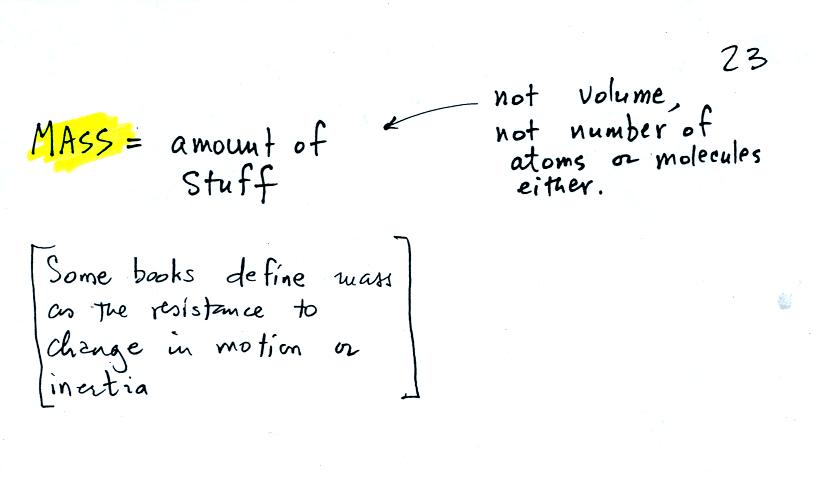 23
MASS = amount of
stuff
not volume,
not number of
atoms or molecules
either.
[Some books define mass
as the resistance to
change in motion or
inertia]